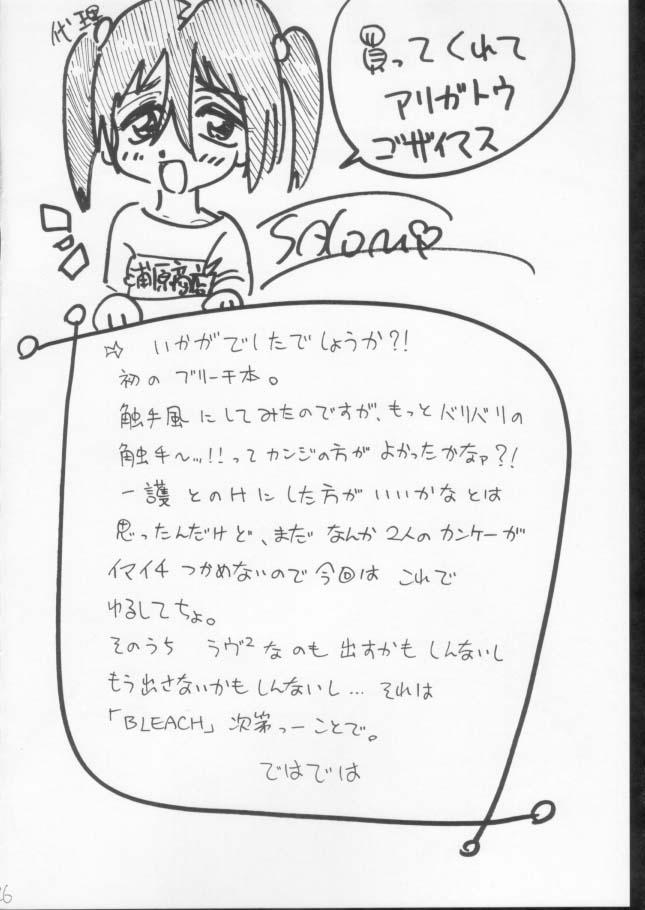 代理
買ってくれて
アリガトウ
ゴザイマス
浦原商店
☆ いかがでしたでしょうか?!
初のブリーチ本。
触手風にしてみたのですが、もっとバリバリの
触手〜ッ!!ってカンジの方がよかったかなァ?!
一護とのHにした方がいいかなとは
思ったんだけど、まだなんか2人のカンケーが
イマイチつかめないので今回はこれで
ゆるしてちょ。
そのうち ラヴ²なのも出すかもしんないし
もう出さないかもしんないし… それは
「BLEACH」次第っーことで。
ではでは
26